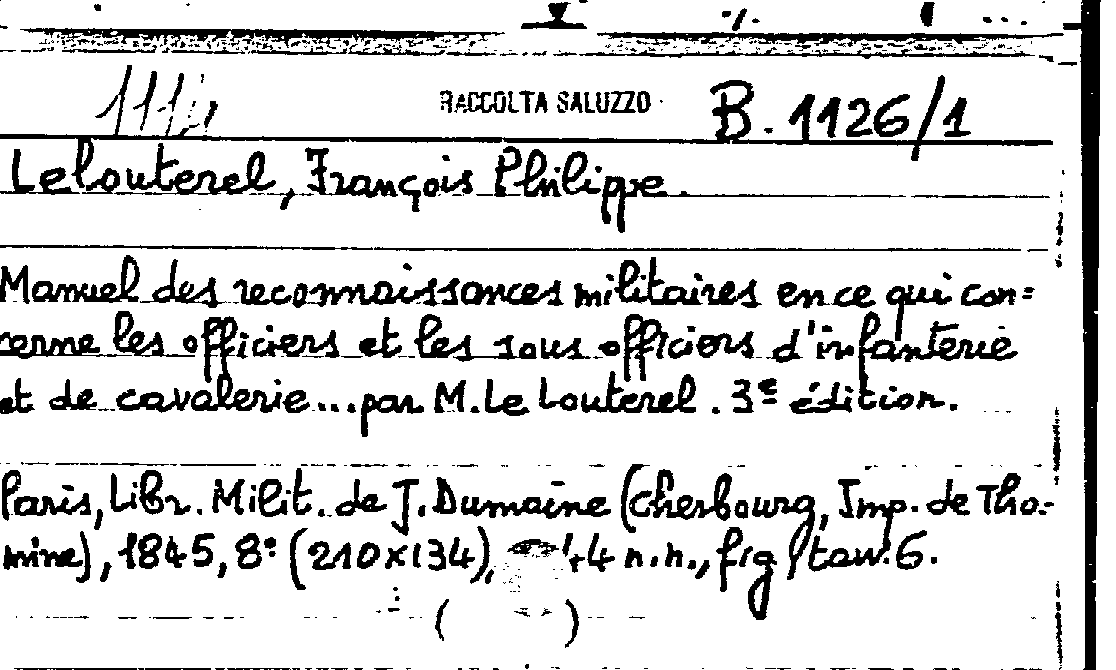 RACCOLTA SALUZZO B. 1126/1
Lelouterel, François Philippe.
Manuel des reconnaissances militaires en ce qui con=
cerne les officiers et les sous officiers d'infanterie
et de cavalerie... par M. Le Louterel. 3e édition.
Paris, Libr. Milit. de J. Dumaine (Cherbourg, Imp. de Tho-
mine), 1845, 8° (210x134), +4 n.n., fig / tav. 6.
( )